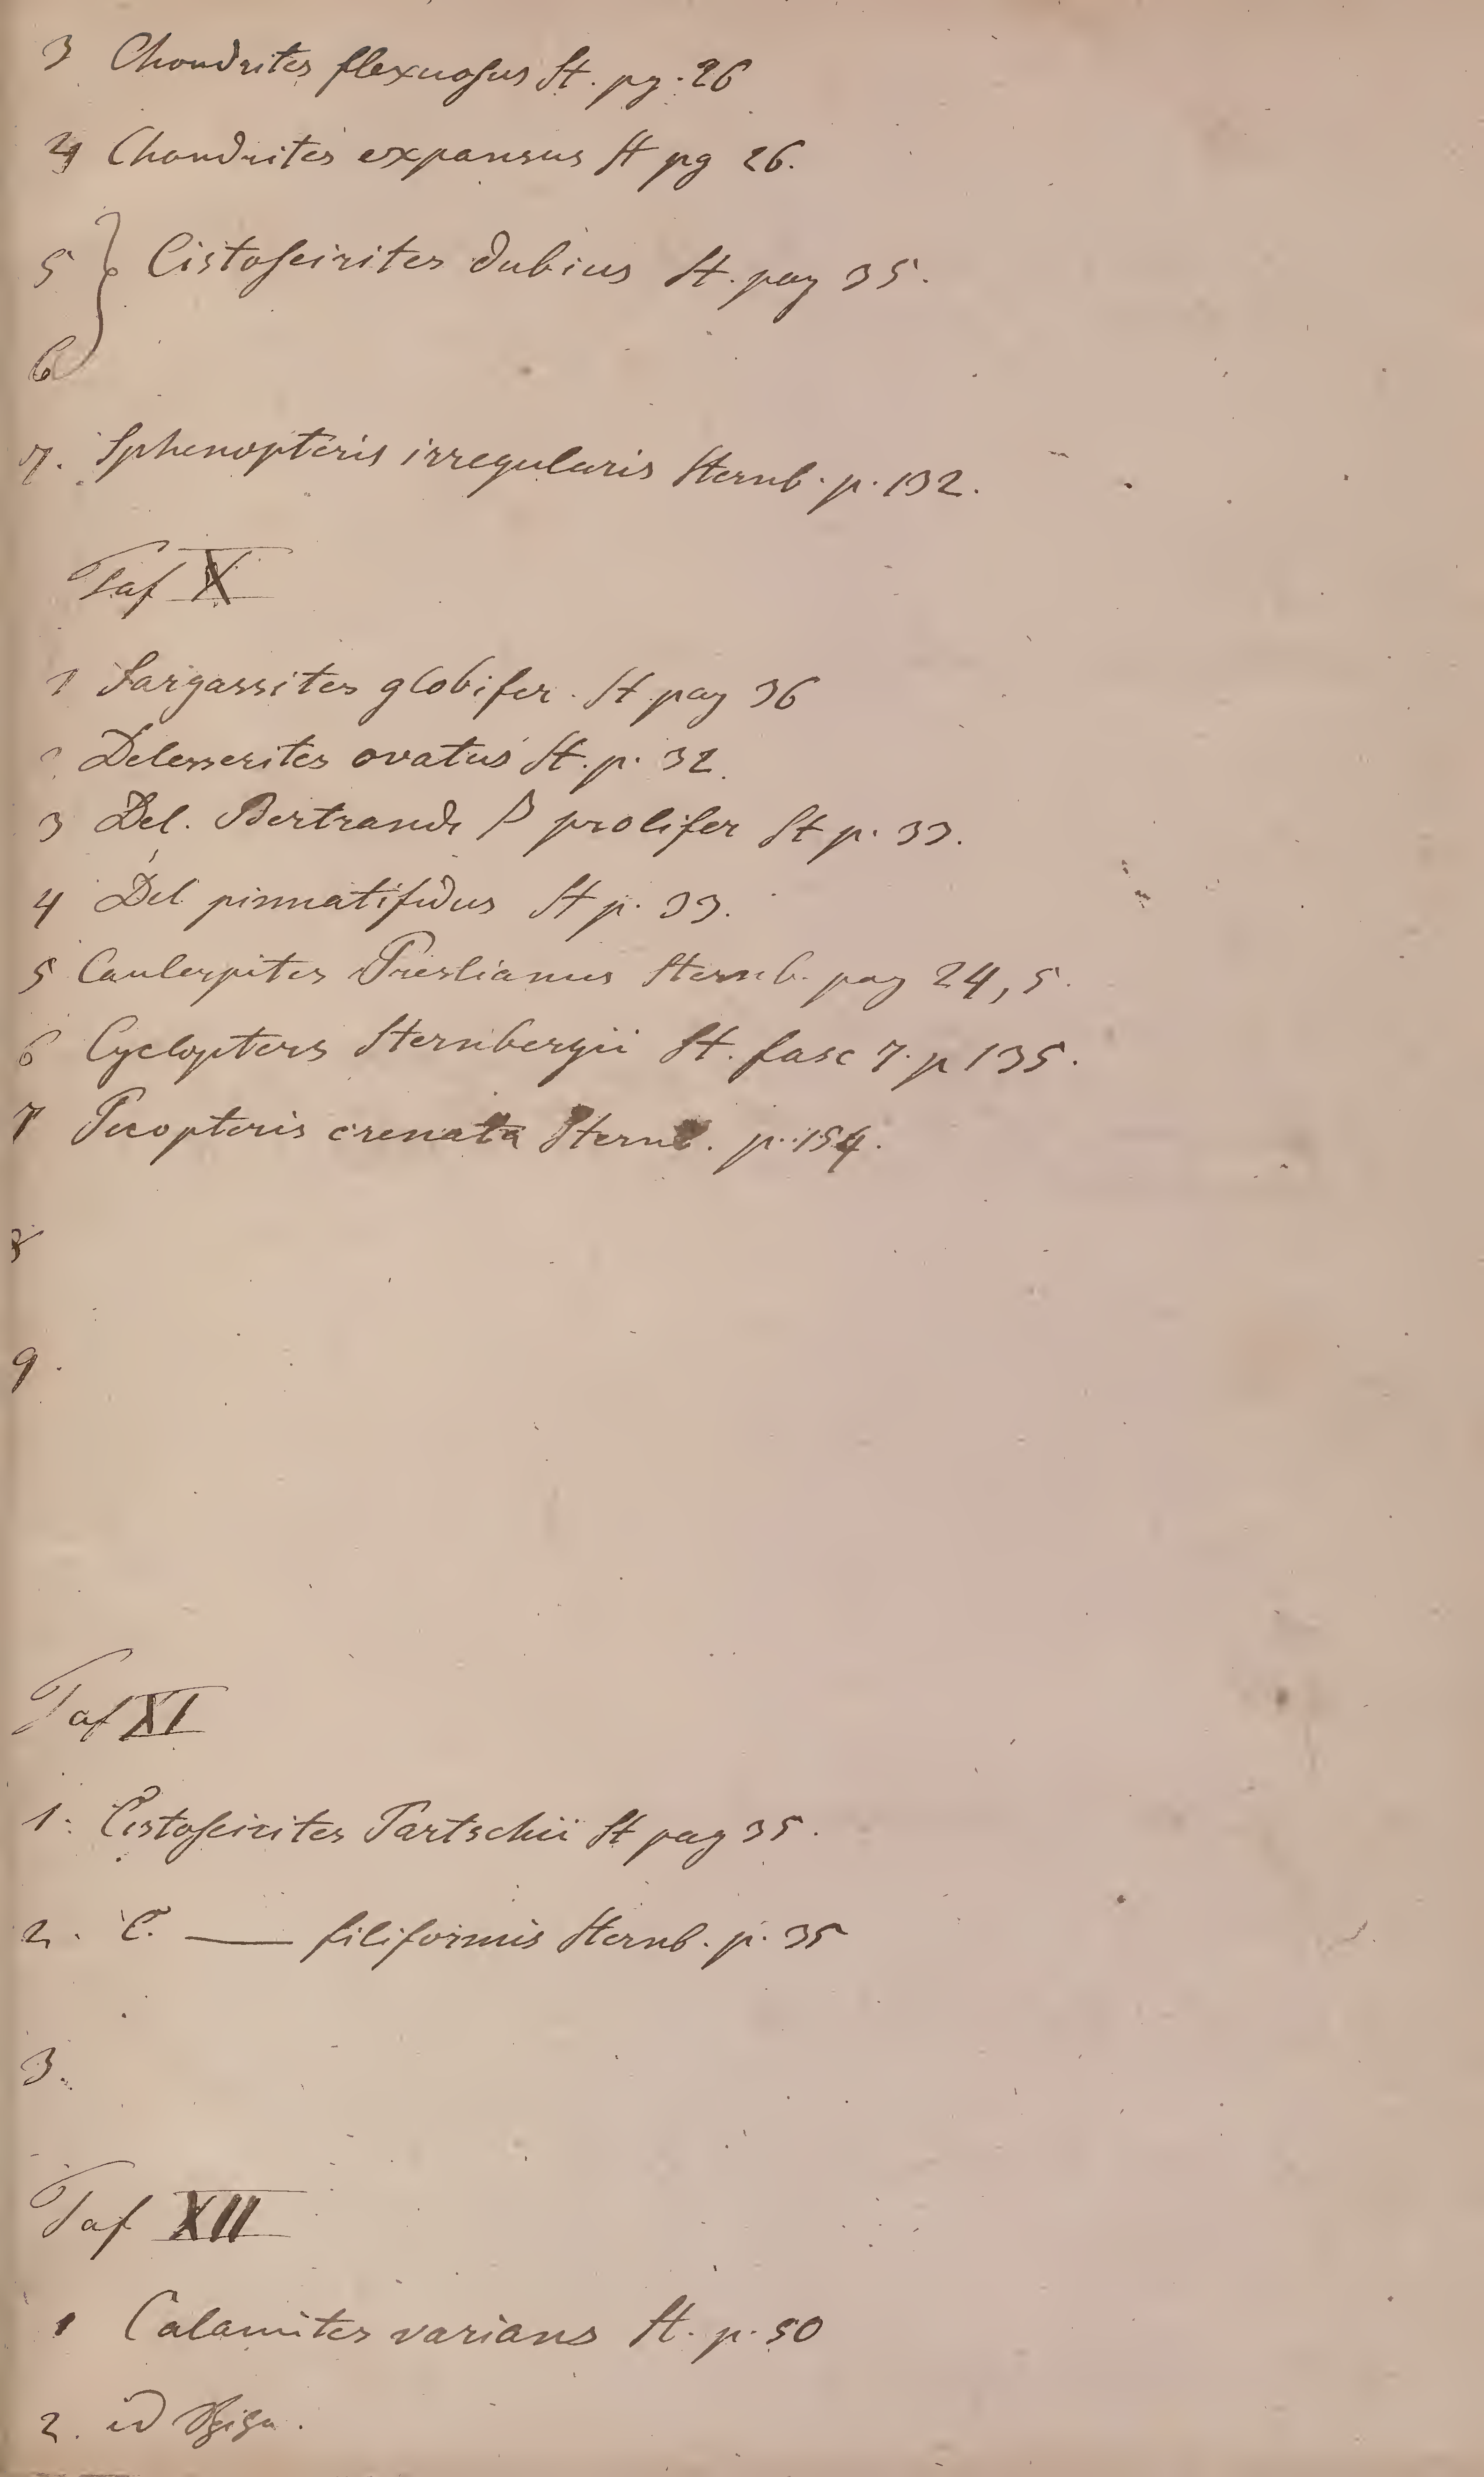 3 Chondrites flexuosus St. pg. 26
4 Chondrites expansus St pg 26.
5 } Cistoseirites dubius St. pag 35.
6
7. Sphenopteris irregularis Sternb. p. 132.
Taf X
1 Sargassites globifer. St pag 36
2 Delesserites ovatus St. p. 32.
3 Del. Bertrandi β prolifer St p. 33.
4 Del pinnatifidus St p. 33.
5 Caulerpites Preslianus Sternb. pag 24, 5.
6 Cyclopters Sternbergii St. fasc 7. p 135.
7 Pecopteris crenata Sternb. p. 154.
8
9.
Taf XI
1. Cistoseirites Partschii St pag 35.
2. C. — filiformis Sternb. p. 35
3.
Taf XII
1 Calamites varians St. p. 50
2. id